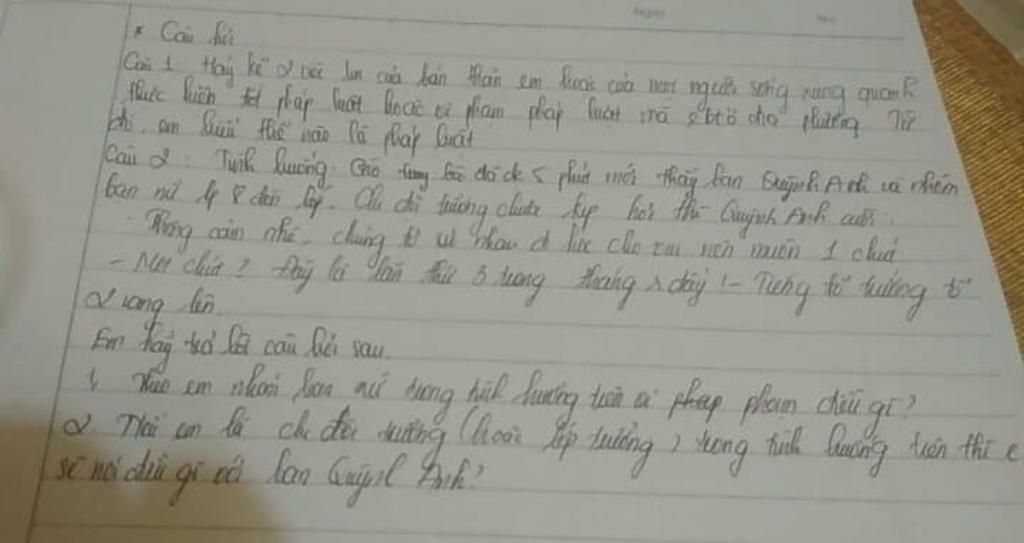 * Câu hỏi
Câu 1 Hãy kể 2 việc làm của bản thân em hoặc của mọi người sống xung quanh
thực hiện tốt pháp luật hoặc vi phạm pháp luật mà e biết ở địa phương Từ
đó, em hiểu thế nào là pháp luật
Câu 2: Tình huống: Giờ trống đã được 5 phút mới thấy bạn Quỳnh Anh và nhóm
bạn nữ lớp 8 đến lớp. Chị đội trưởng chưa kịp hỏi thì Quỳnh Anh cười:
- Thông cảm nhé, chúng tớ rủ nhau đi cho vui nên muộn 1 chút
- Một chút? Đây là lần thứ 3 trong tháng đấy! - Tiếng tổ trưởng tổ
2 vang lên
Em hãy trả lời câu hỏi sau
1, Theo em nhóm bạn nữ trong tình huống trên vi pháp phạm điều gì?
2 Nếu em là chi đội trưởng (hoặc lớp trưởng) trong tình huống trên thì e
sẽ nói điều gì với bạn Quỳnh Anh?